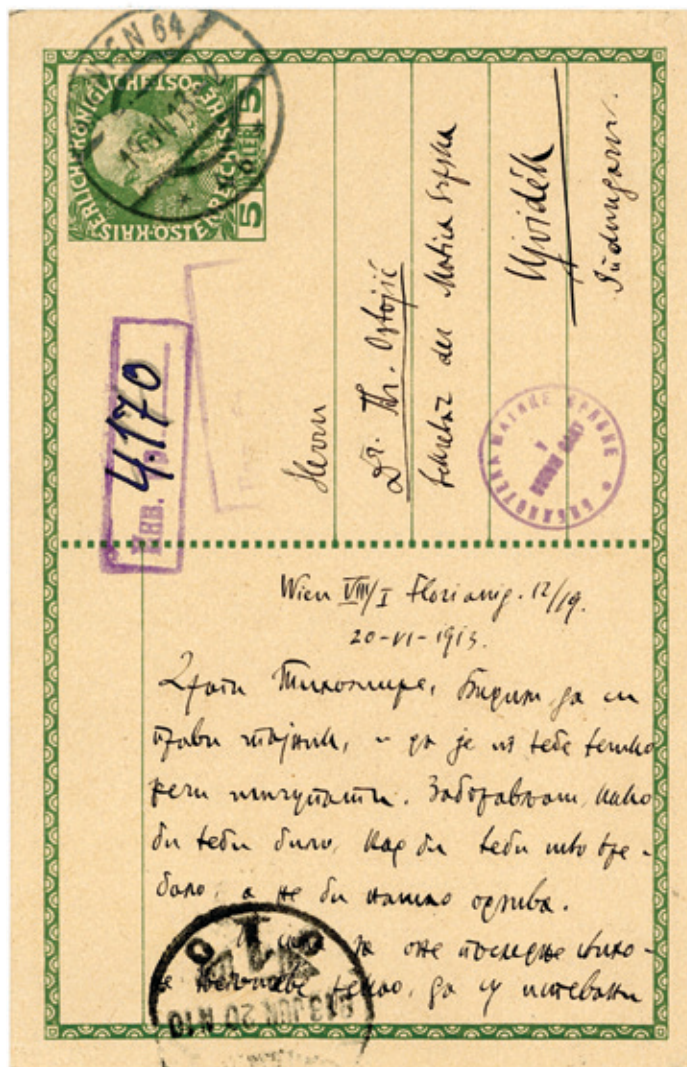 WIEN 64
KAISERLICH KÖNIGLICHE
ÖSTERREICHISCHE POST
5 HELLER 5
4.170
Herrn
Dr. Th. Ostojić
Sekretär der Matica Srpska
Ujvidék
Südungarn.
Wien VIII/I Florianig. 12/19.
20-VI-1913.
Драги Тихомире, Видим да си
прави тајник, и да је из тебе тешко
речи ишчупати. Заборављаш, како
би теби било, кад би теби што тре-
бало, а не би нашао одзива.
за оне последње
да су
913 JUN 20